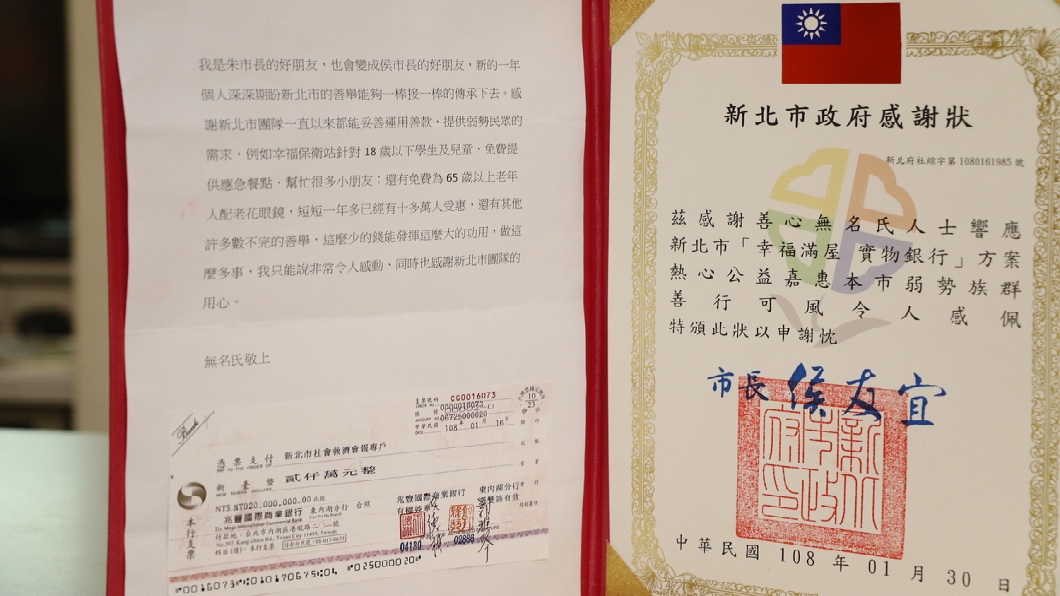 我是朱市長的好朋友，也會變成侯市長的好朋友，新的一年
個人深深期盼新北市的善舉能夠一棒接一棒的傳承下去。感
謝新北市團隊一直以來都能妥善運用善款，提供弱勢民眾的
需求，例如幸福保衛站針對 18 歲以下學生及兒童，免費提
供應急餐點，幫忙很多小朋友；還有免費為 65 歲以上老年
人配老花眼鏡，短短一年多已經有十多萬人受惠，還有其他
許多數不完的善舉，這麼少的錢能發揮這麼大的功用，做這
麼多事，我只能說非常令人感動、同時也感謝新北市團隊的
用心。
無名氏敬上
Bank
支票號碼 CG0016073
帳號
ACCOUNT NO. 06725000020
中華民國 108 年 01 月 16 日
DATE
憑票支付 新北市社會救濟會報專戶
PAY TO THE ORDER OF
新臺幣 貳仟萬元整
NEW TAIWAN DOLLARS
NT$ NTD20,000,000.00 此致
兆豐國際商業銀行 東內湖分行 台照
Mega International Commercial Bank
付款地：台北市內湖區港墘路
Taipei City 11494, Taiwan
科目(借)：本行支票
本行支票
兆豐國際商業銀行 東內湖分行
04180
02886
新北市政府感謝狀
新北府社綜字第 1080161985 號
茲感謝善心無名氏人士響應
新北市「幸福滿屋 實物銀行」方案
熱心公益嘉惠本市弱勢族群
善行可風令人感佩
特頒此狀以申謝忱
市長 侯友宜
新北市政府印
中華民國 108 年 01 月 30 日